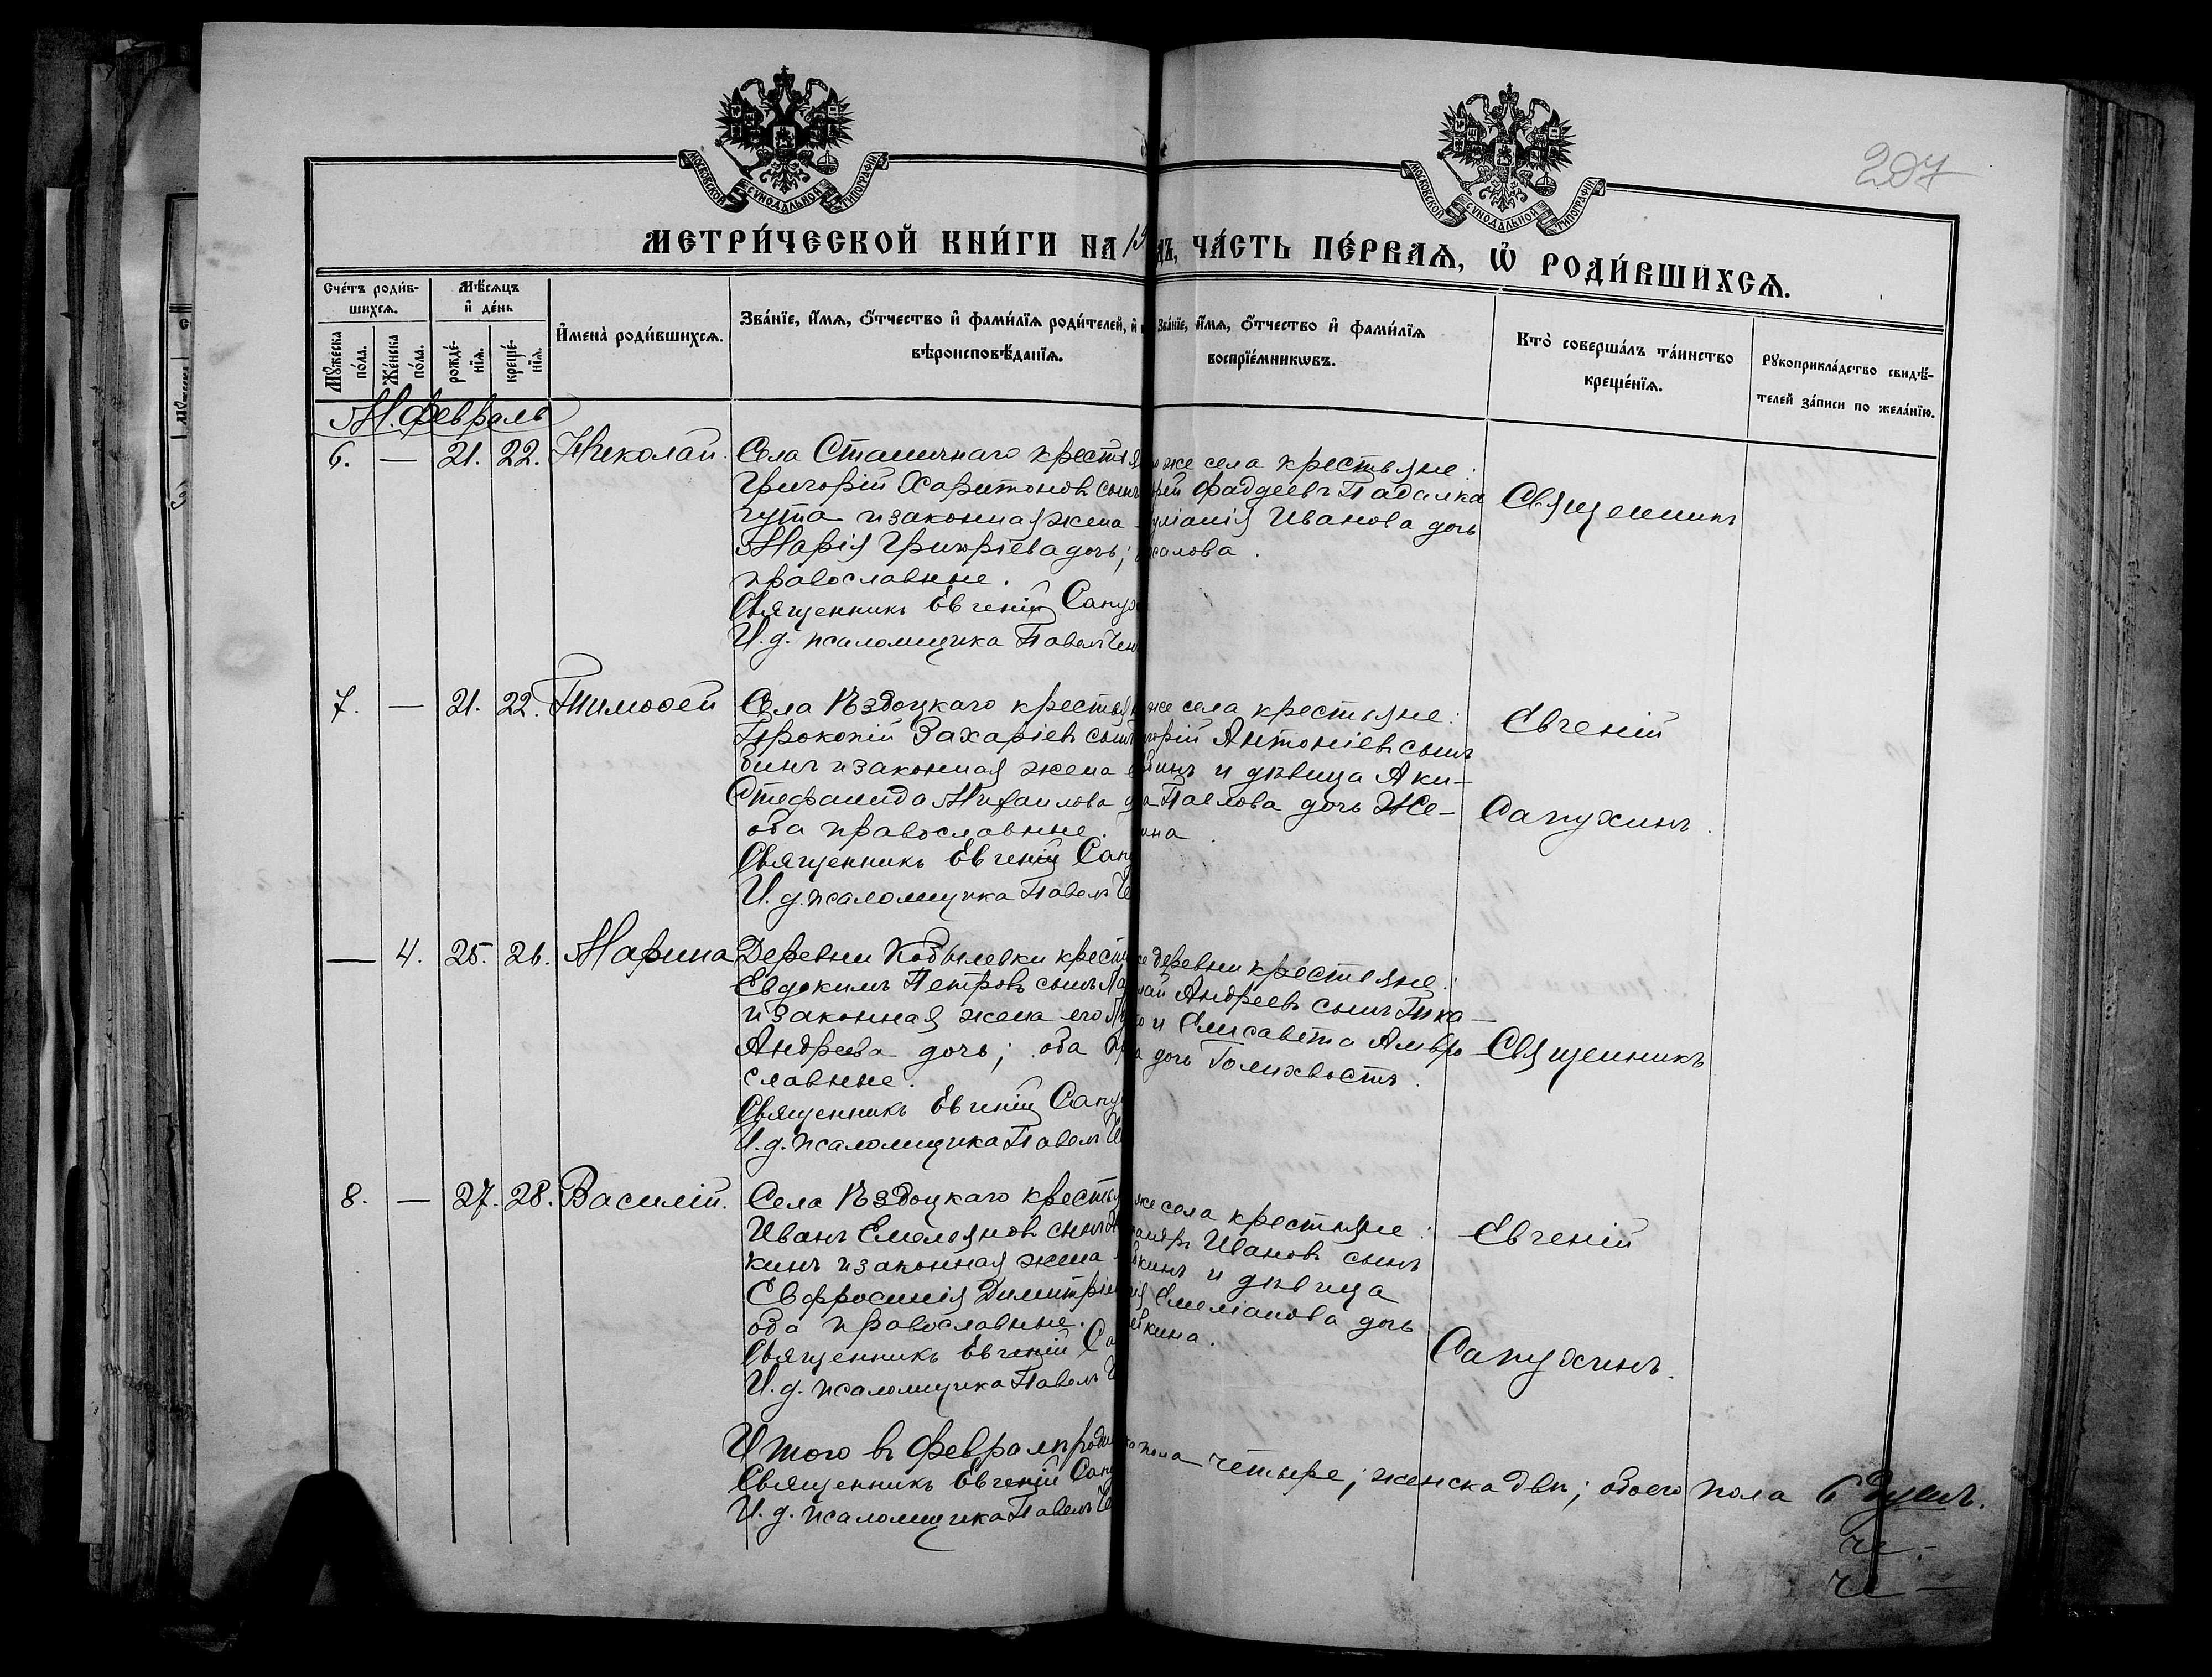 207
МОСКОВСКОЙ СѴНОДАЛЬНОЙ ТИПОГРАФІИ
МОСКОВСКОЙ СѴНОДАЛЬНОЙ ТИПОГРАФІИ
МЕТРИ́ЧЕСКОЙ КНИ́ГИ НА 19
ДЪ, ЧА́СТЬ ПЕ́РВАѦ, Ѡ҆ РОДИ́ВШИХСѦ.
Сче́тъ роди́в-
шихсѧ.
Мꙋжеска по́ла.
Же́нска по́ла.
Мѣ́сѧцъ и҆ де́нь
рожде́-нїѧ.
креще́-нїѧ.
И҆мена̀ роди́вшихсѧ.
Зва́нїе, и҆́мѧ, ѻ҆́тчество и҆ фами́лїѧ роди́телей, и҆
вѣроисповѣ́данїѧ.
Зва́нїе, и҆́мѧ, ѻ҆́тчество и҆ фами́лїѧ
воспрїе́мникѡвъ.
Кто̀ соверша́лъ та́инство
креще́нїѧ.
Рꙋкоприкла́дство свидѣ́-
телей за́писи по жела́нїю.
М. Февраль
6. — 21. 22. Николай.
Села Стапичнаго крестья
Григорій Харитоновъ сынъ
гута и законная жена
Марія Григоріева дочь;
православные.
Священникъ Евгеній Сапух
И. д. псаломщика Павелъ Чен
же села крестьяне:
рій Фаддеевъ Падалка
уліанія Иванова дочь
калова.
Священникъ
7. — 21. 22. Тимофей
Села Ѣздоцкаго крестья
Прокопій Захаріевъ сынъ
бинъ и законная жена
Стефанида Михаилова
оба православные.
Священникъ Евгеній Сапу
И. д. псаломщика Павелъ Че
же села крестьяне:
горій Антоніевъ сынъ
бинъ и дѣвица Аки-
Павлова дочь Же-
ина.
Евгеній
Сапухинъ.
— 4. 25. 26. Марина
Деревни Кобылевки крест
Евдокимъ Петровъ сынъ
и законная жена его
Андреева дочь; оба пра
славные.
Священникъ Евгеній Сапу
И. д. псаломщика Павелъ Ч
же деревни крестьяне:
лай Андреевъ сынъ Тка-
и Елисавета Амвро-
дочь Голихвостъ.
Священникъ
8. — 27. 28. Василій.
Села Ѣздоцкаго крестья
Иванъ Емельяновъ сынъ
кинъ и законная жена
Евфросинія Димитріе
оба православные.
Священникъ Евгеній Са
И. д. псаломщика Павелъ Ч
же села крестьяне:
сандръ Ивановъ сынъ
кинъ и дѣвица
Емеліанова дочь
кина.
Евгеній
Сапухинъ.
Итого въ Февралѣ роди
ка пола четыре; женска двѣ; обоего пола 6 душъ.
Священникъ Евгеній Сапу
И. д. псаломщика Павелъ Че